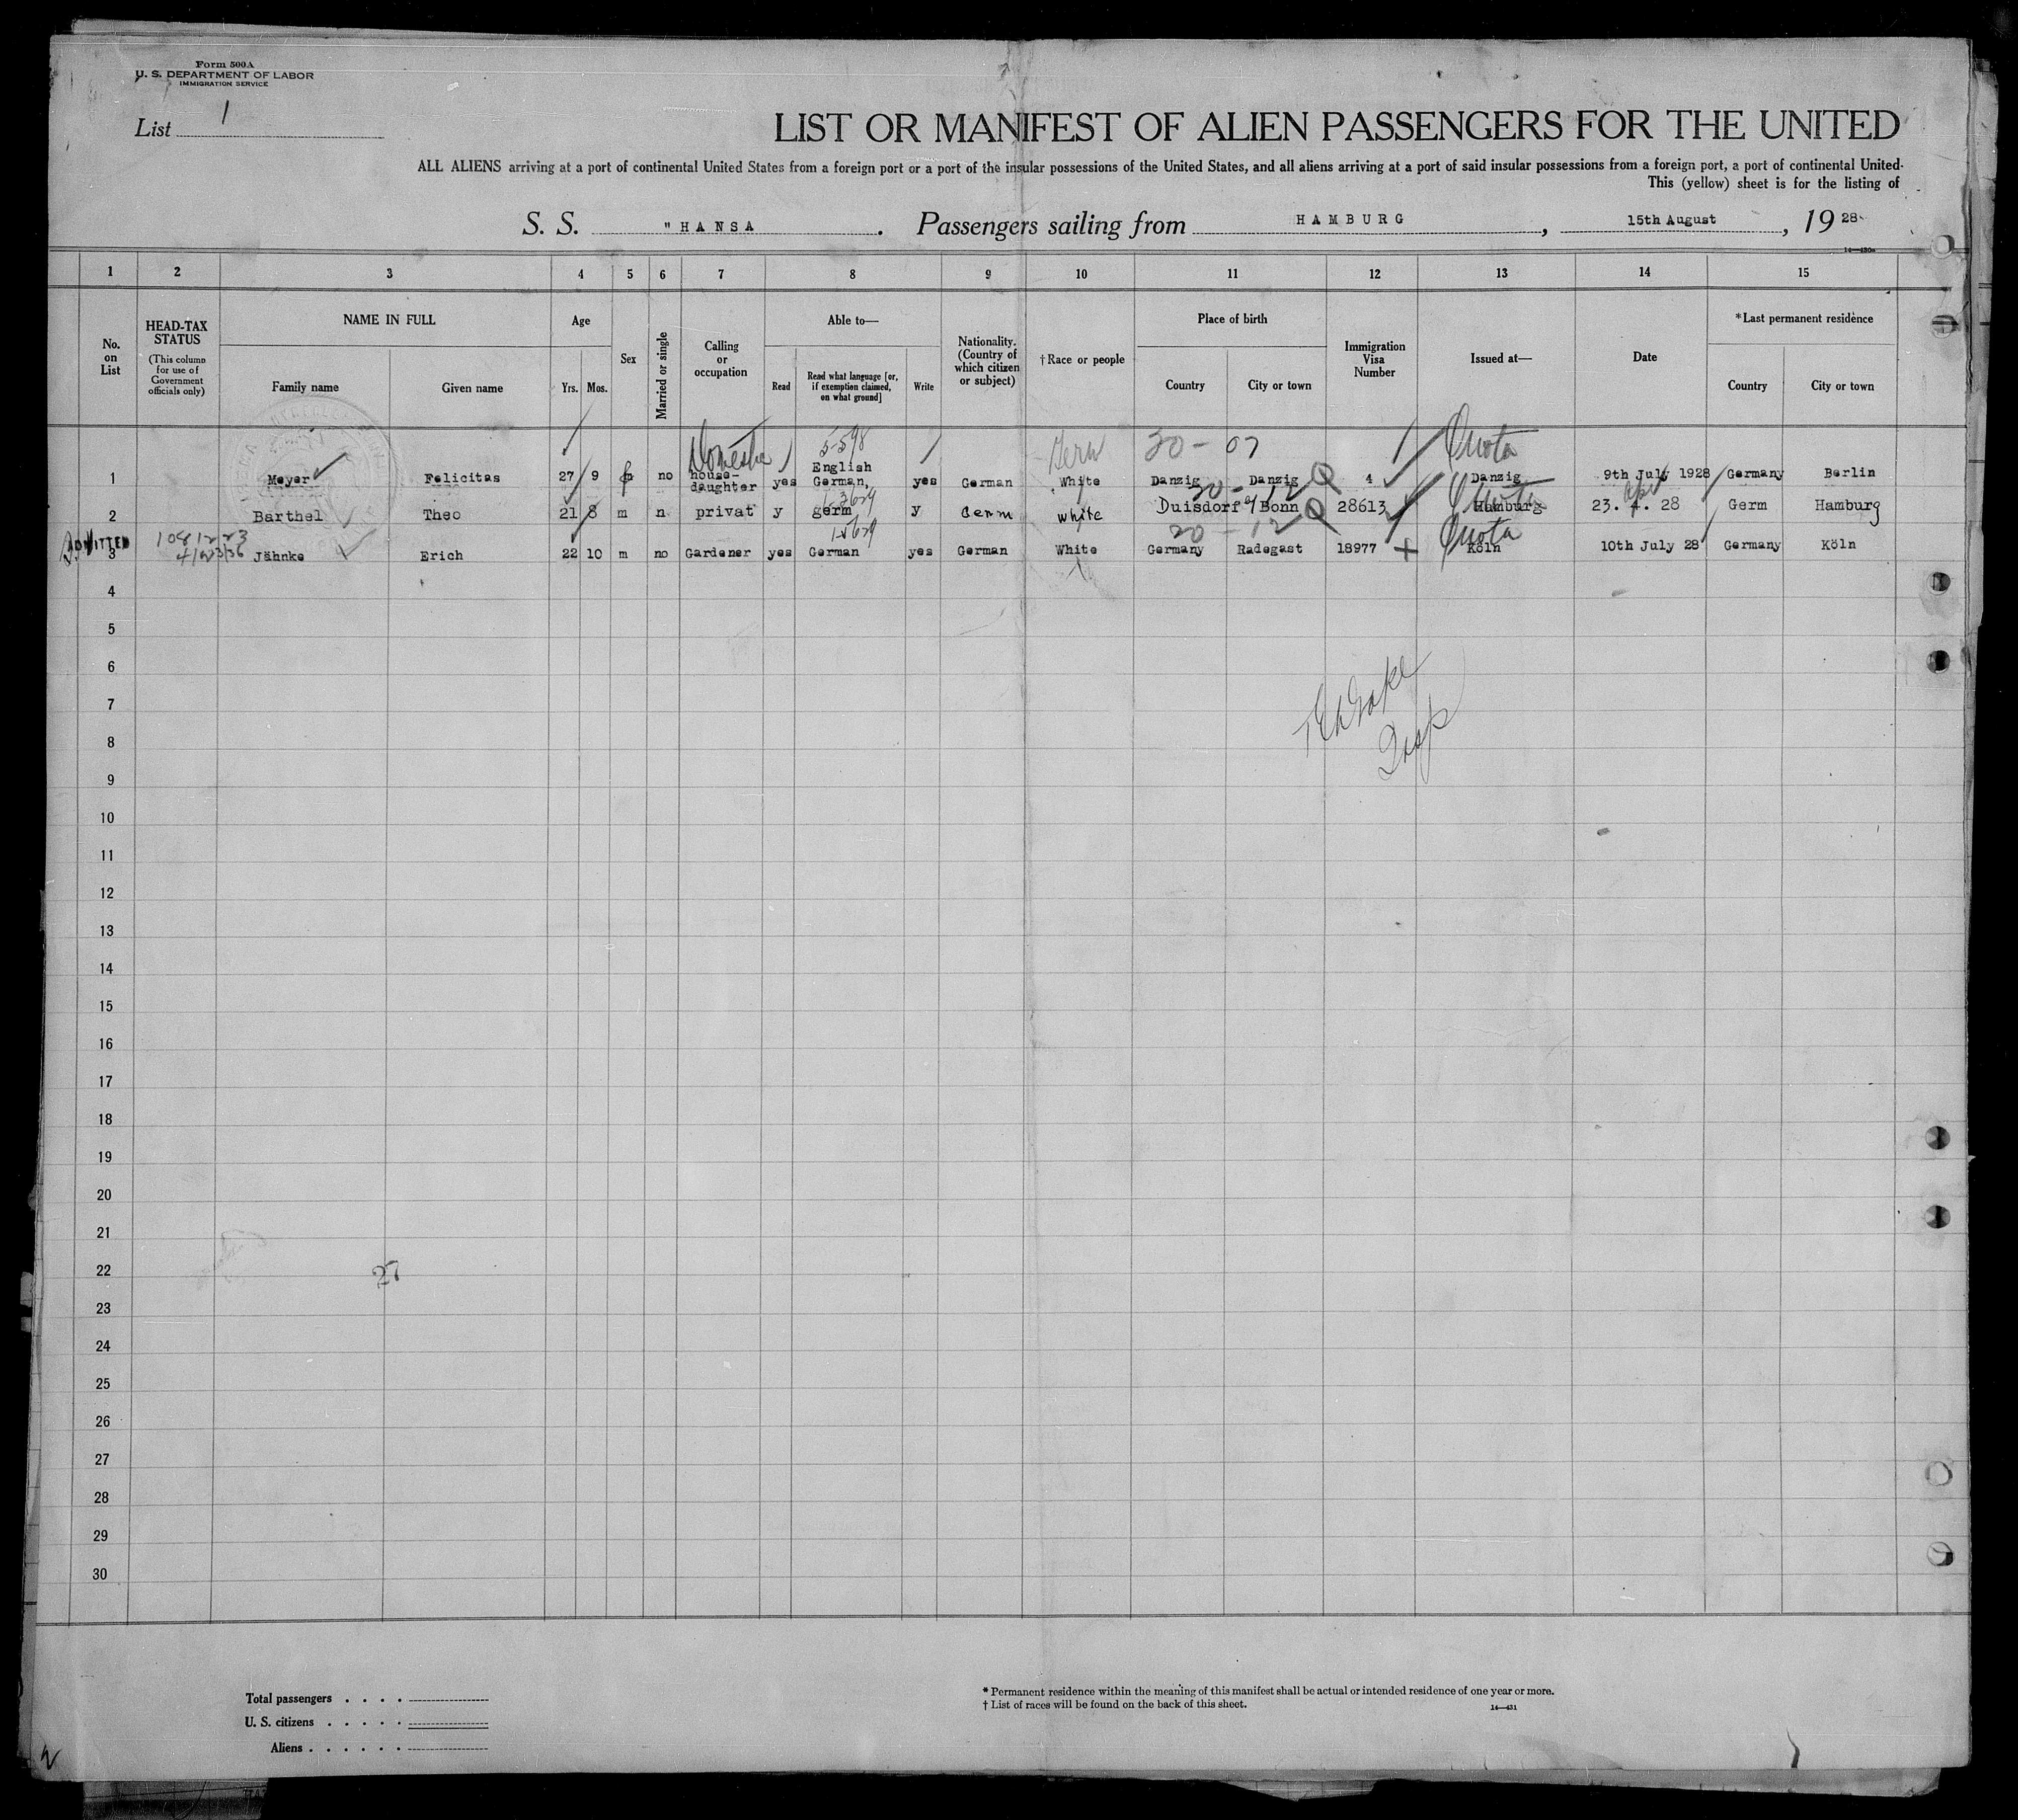 Form 500A
U. S. DEPARTMENT OF LABOR
IMMIGRATION SERVICE
List 1
LIST OR MANIFEST OF ALIEN PASSENGERS FOR THE UNITED
ALL ALIENS arriving at a port of continental United States from a foreign port or a port of the insular possessions of the United States, and all aliens arriving at a port of said insular possessions from a foreign port, a port of continental United
This (yellow) sheet is for the listing of
S. S. "HANSA . Passengers sailing from HAMBURG , 15th August , 19 28
1 2 3 4 5 6 7 8 9 10 11 12 13 14 15
No. on List
HEAD-TAX STATUS
(This column for use of Government officials only)
NAME IN FULL
Family name Given name
Age
Yrs. Mos.
Sex
Married or single
Calling or occupation
Able to—
Read
Read what language [or, if exemption claimed, on what ground]
Write
Nationality. (Country of which citizen or subject)
† Race or people
Place of birth
Country City or town
Immigration Visa Number
Issued at—
Date
*Last permanent residence
Country City or town
Domestic 5-598 Germ 20 - 07 Quota
1 Meyer Felicitas 27 9 f no house-daughter yes English German, yes German White Danzig Danzig Q 4 Danzig 9th July 1928 Germany Berlin
20 - 12 Quota
2 Barthel Theo 21 8 m n privat y germ y Germ white Duisdorf o/ Bonn Q 28613 Hamburg 23. 4. 28 Germ Hamburg
20 - 12 Quota
ADMITTED
3 Jähnke Erich 22 10 m no Gardener yes German yes German White Germany Radegast 18977 Köln 10th July 28 Germany Köln
4
5
6
7
8
9
10
11
12
13
14
15
16
17
18
19
20
21
22 27
23
24
25
26
27
28
29
30
Drake
Insp
Total passengers . . . .
U. S. citizens . . . . .
Aliens . . . . . .
* Permanent residence within the meaning of this manifest shall be actual or intended residence of one year or more.
† List of races will be found on the back of this sheet.
14—431